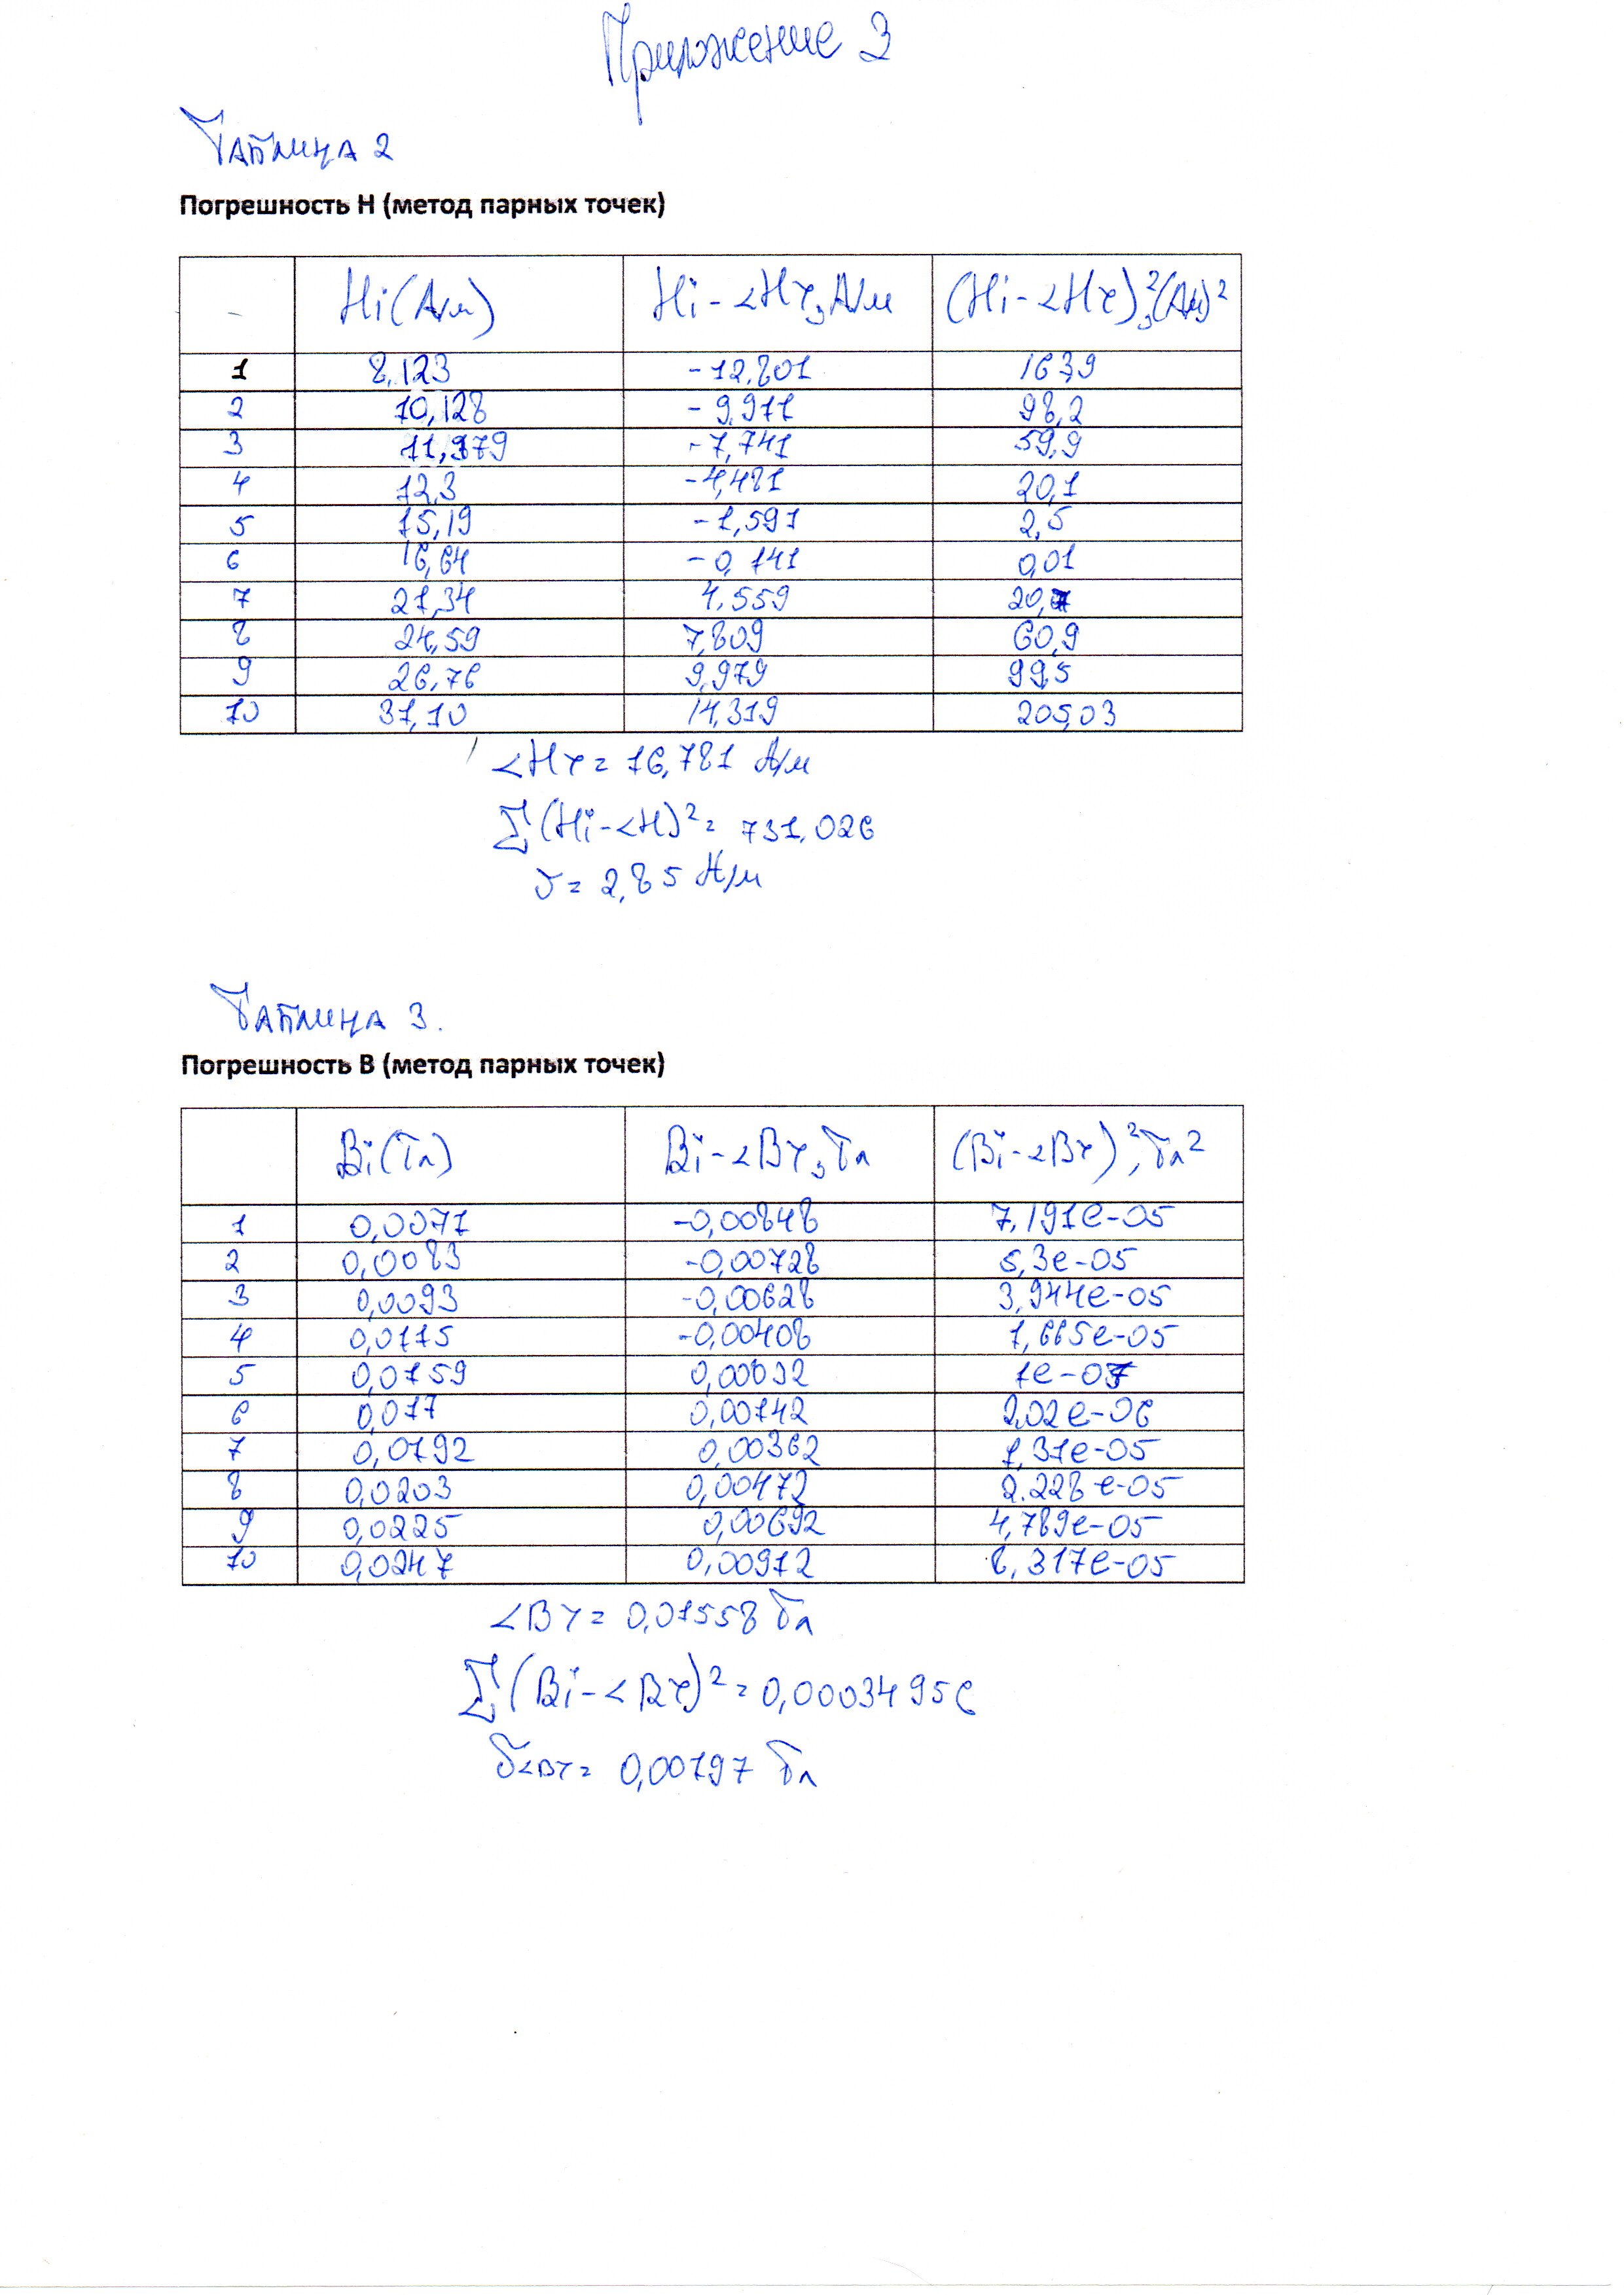 Приложение 3
Таблица 2
Погрешность H (метод парных точек)
Hi(А/м) Hi-<H>, А/м (Hi-<H>)², (А/м)²
1 8,123 -12,801 163,9
2 10,128 -9,911 98,2
3 11,979 -7,741 59,9
4 12,3 -4,481 20,1
5 15,19 -1,591 2,5
6 16,64 -0,141 0,01
7 21,34 4,559 20,7
8 24,59 7,809 60,9
9 26,76 9,979 99,5
10 31,10 14,319 205,03
<H> = 16,781 А/м
∑(Hi-<H)² = 731,026
δ = 2,85 А/м
Таблица 3.
Погрешность B (метод парных точек)
Bi(Тл) Bi-<B>, Тл (Bi-<B>)², Тл²
1 0,0071 -0,00848 7,191e-05
2 0,0083 -0,00728 5,3e-05
3 0,0093 -0,00628 3,944e-05
4 0,0115 -0,00408 1,665e-05
5 0,0159 0,00032 1e-07
6 0,017 0,00142 2,02e-06
7 0,0192 0,00362 1,31e-05
8 0,0203 0,00472 2.228e-05
9 0,0225 0,00692 4,789e-05
10 0,0247 0,00912 8,317e-05
<B> = 0,01558 Тл
∑(Bi-<B>)² = 0,00034956
δ<B> = 0,00197 Тл